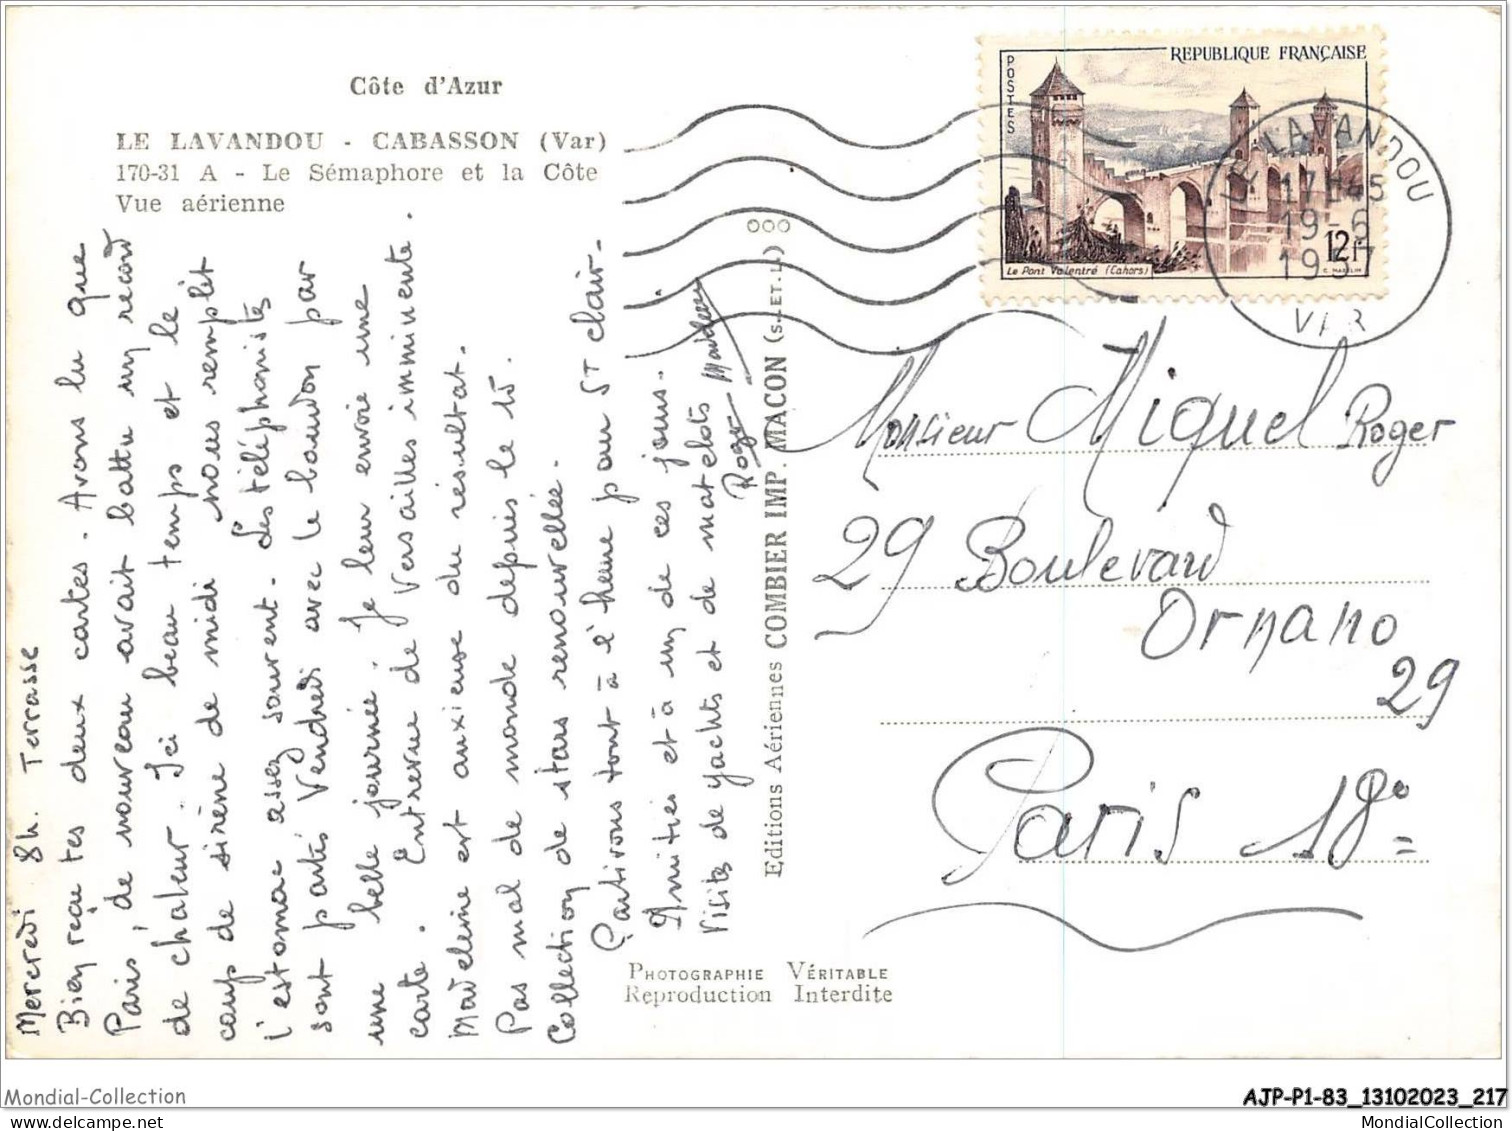 Côte d'Azur
LE LAVANDOU - CABASSON (Var)
170-31 A - Le Sémaphore et la Côte
Vue aérienne
Mercredi 8h. Terrasse
Bien reçu tes deux cartes. Avons lu que
Paris, de nouveau avait battu un record
de chaleur. Ici beau temps et le
coup de sirène de midi nous remplit
l'estomac assez souvent. Les téléphonistes
sont partis Vendredi avec le bourdon par
une belle journée. Je leur envoie une
carte. Entrevue de Versailles imminente.
Madeleine est anxieuse du résultat.
Pas mal de monde depuis le 15.
Collection de stars renouvellée.
Partirons tout à l'heure pour St Clair.
Amitiés et à un de ces jours.
Visites de yachts et de matelots
Roger
Editions Aériennes COMBIER IMP. MACON (S.-ET-L.)
PHOTOGRAPHIE VÉRITABLE
Reproduction Interdite
POSTES
REPUBLIQUE FRANÇAISE
Le Pont Valentré (Cahors)
12f
LE LAVANDOU
17H45
19-6
1957
VAR
Monsieur Miguel Roger
29 Boulevard
Ornano
29
Paris 18e
Mondial-Collection
AJP-P1-83_13102023_217
MondialCollection.com